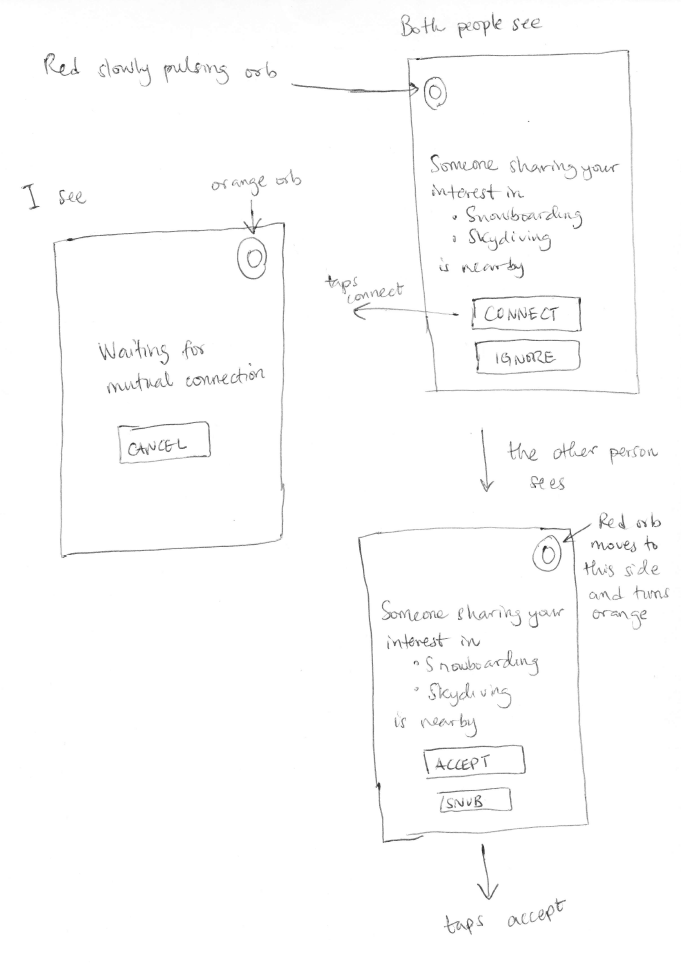 Both people see
Red slowly pulsing orb
Someone sharing your
interest in
• Snowboarding
• Skydiving
is nearby
CONNECT
IGNORE
taps
connect
I see
orange orb
Waiting for
mutual connection
CANCEL
the other person
sees
Red orb
moves to
this side
and turns
orange
Someone sharing your
interest in
• Snowboarding
• Skydiving
is nearby
ACCEPT
SNUB
taps accept